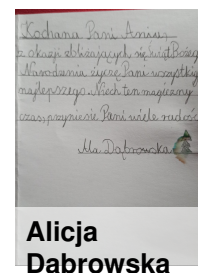 Kochana Pani Aniu,
z okazji zbliżających się świąt Bożego
Narodzenia życzę Pani wszystkiego
najlepszego. Niech ten magiczny
czas, przyniesie Pani wiele radości
Ala Dąbrowska
Alicja
Dąbrowska